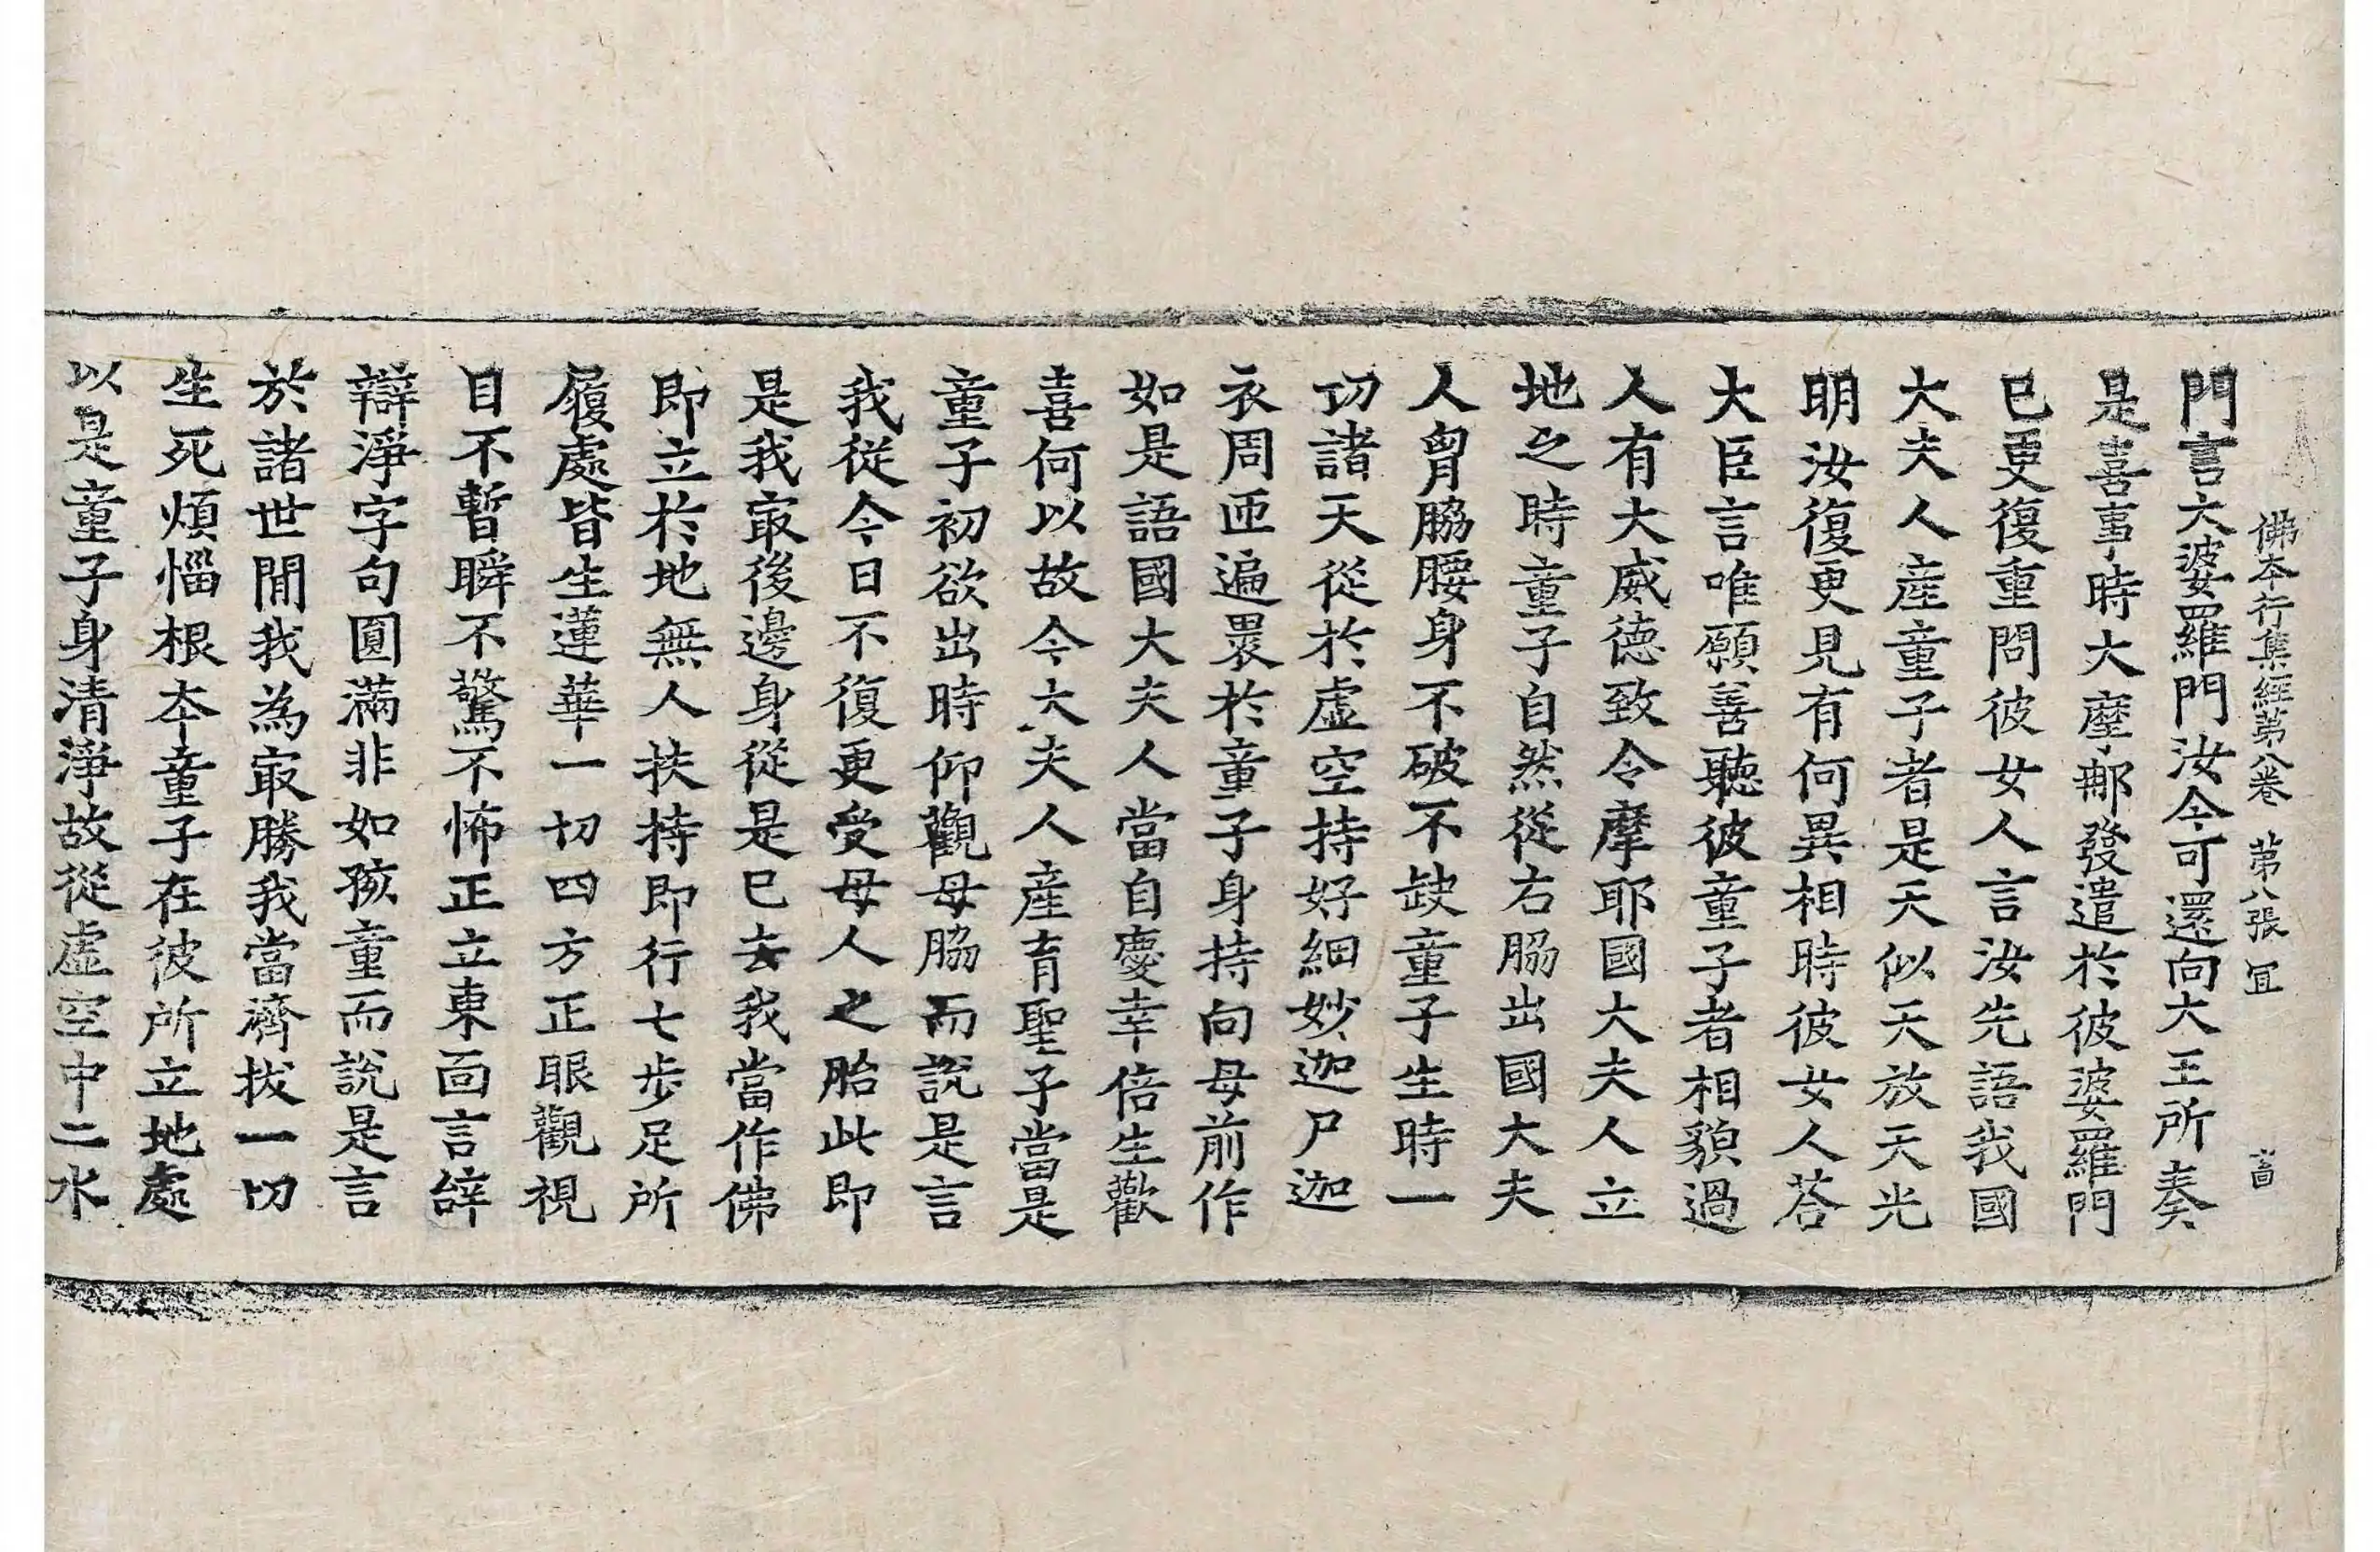 佛本行集經第八卷 第八張 冝
門言大婆羅門汝今可還向大王所奏
是喜事時大臣那發遣於彼婆羅門
已更復重問彼女人言汝先語我國
大夫人產童子者是天似天放天光
明汝復更見有何異相時彼女人荅
大臣言唯願善聽彼童子者相貌過
人有大威德致令摩耶國大夫人立
地之時童子自然從右脇出國大夫
人胷脇腰身不破不缺童子生時一
切諸天從於虛空持好細妙迦尸迦
衣周匝遍褁於童子身持向母前作
如是語國大夫人當自慶幸倍生歡
喜何以故今大夫人產育聖子當是
童子初欲出時仰觀母脇而說是言
我從今日不復更受母人之胎此即
是我㝡後邊身從是已去我當作佛
即立於地無人扶持即行七步足所
履處皆生蓮華一切四方正眼觀視
目不暫瞬不驚不怖正立東面言辝
辯淨字句圓滿非如孩童而說是言
於諸世閒我為㝡勝我當濟拔一切
生死煩惱根本童子在彼所立地處
以是童子身清淨故從虛空中二水